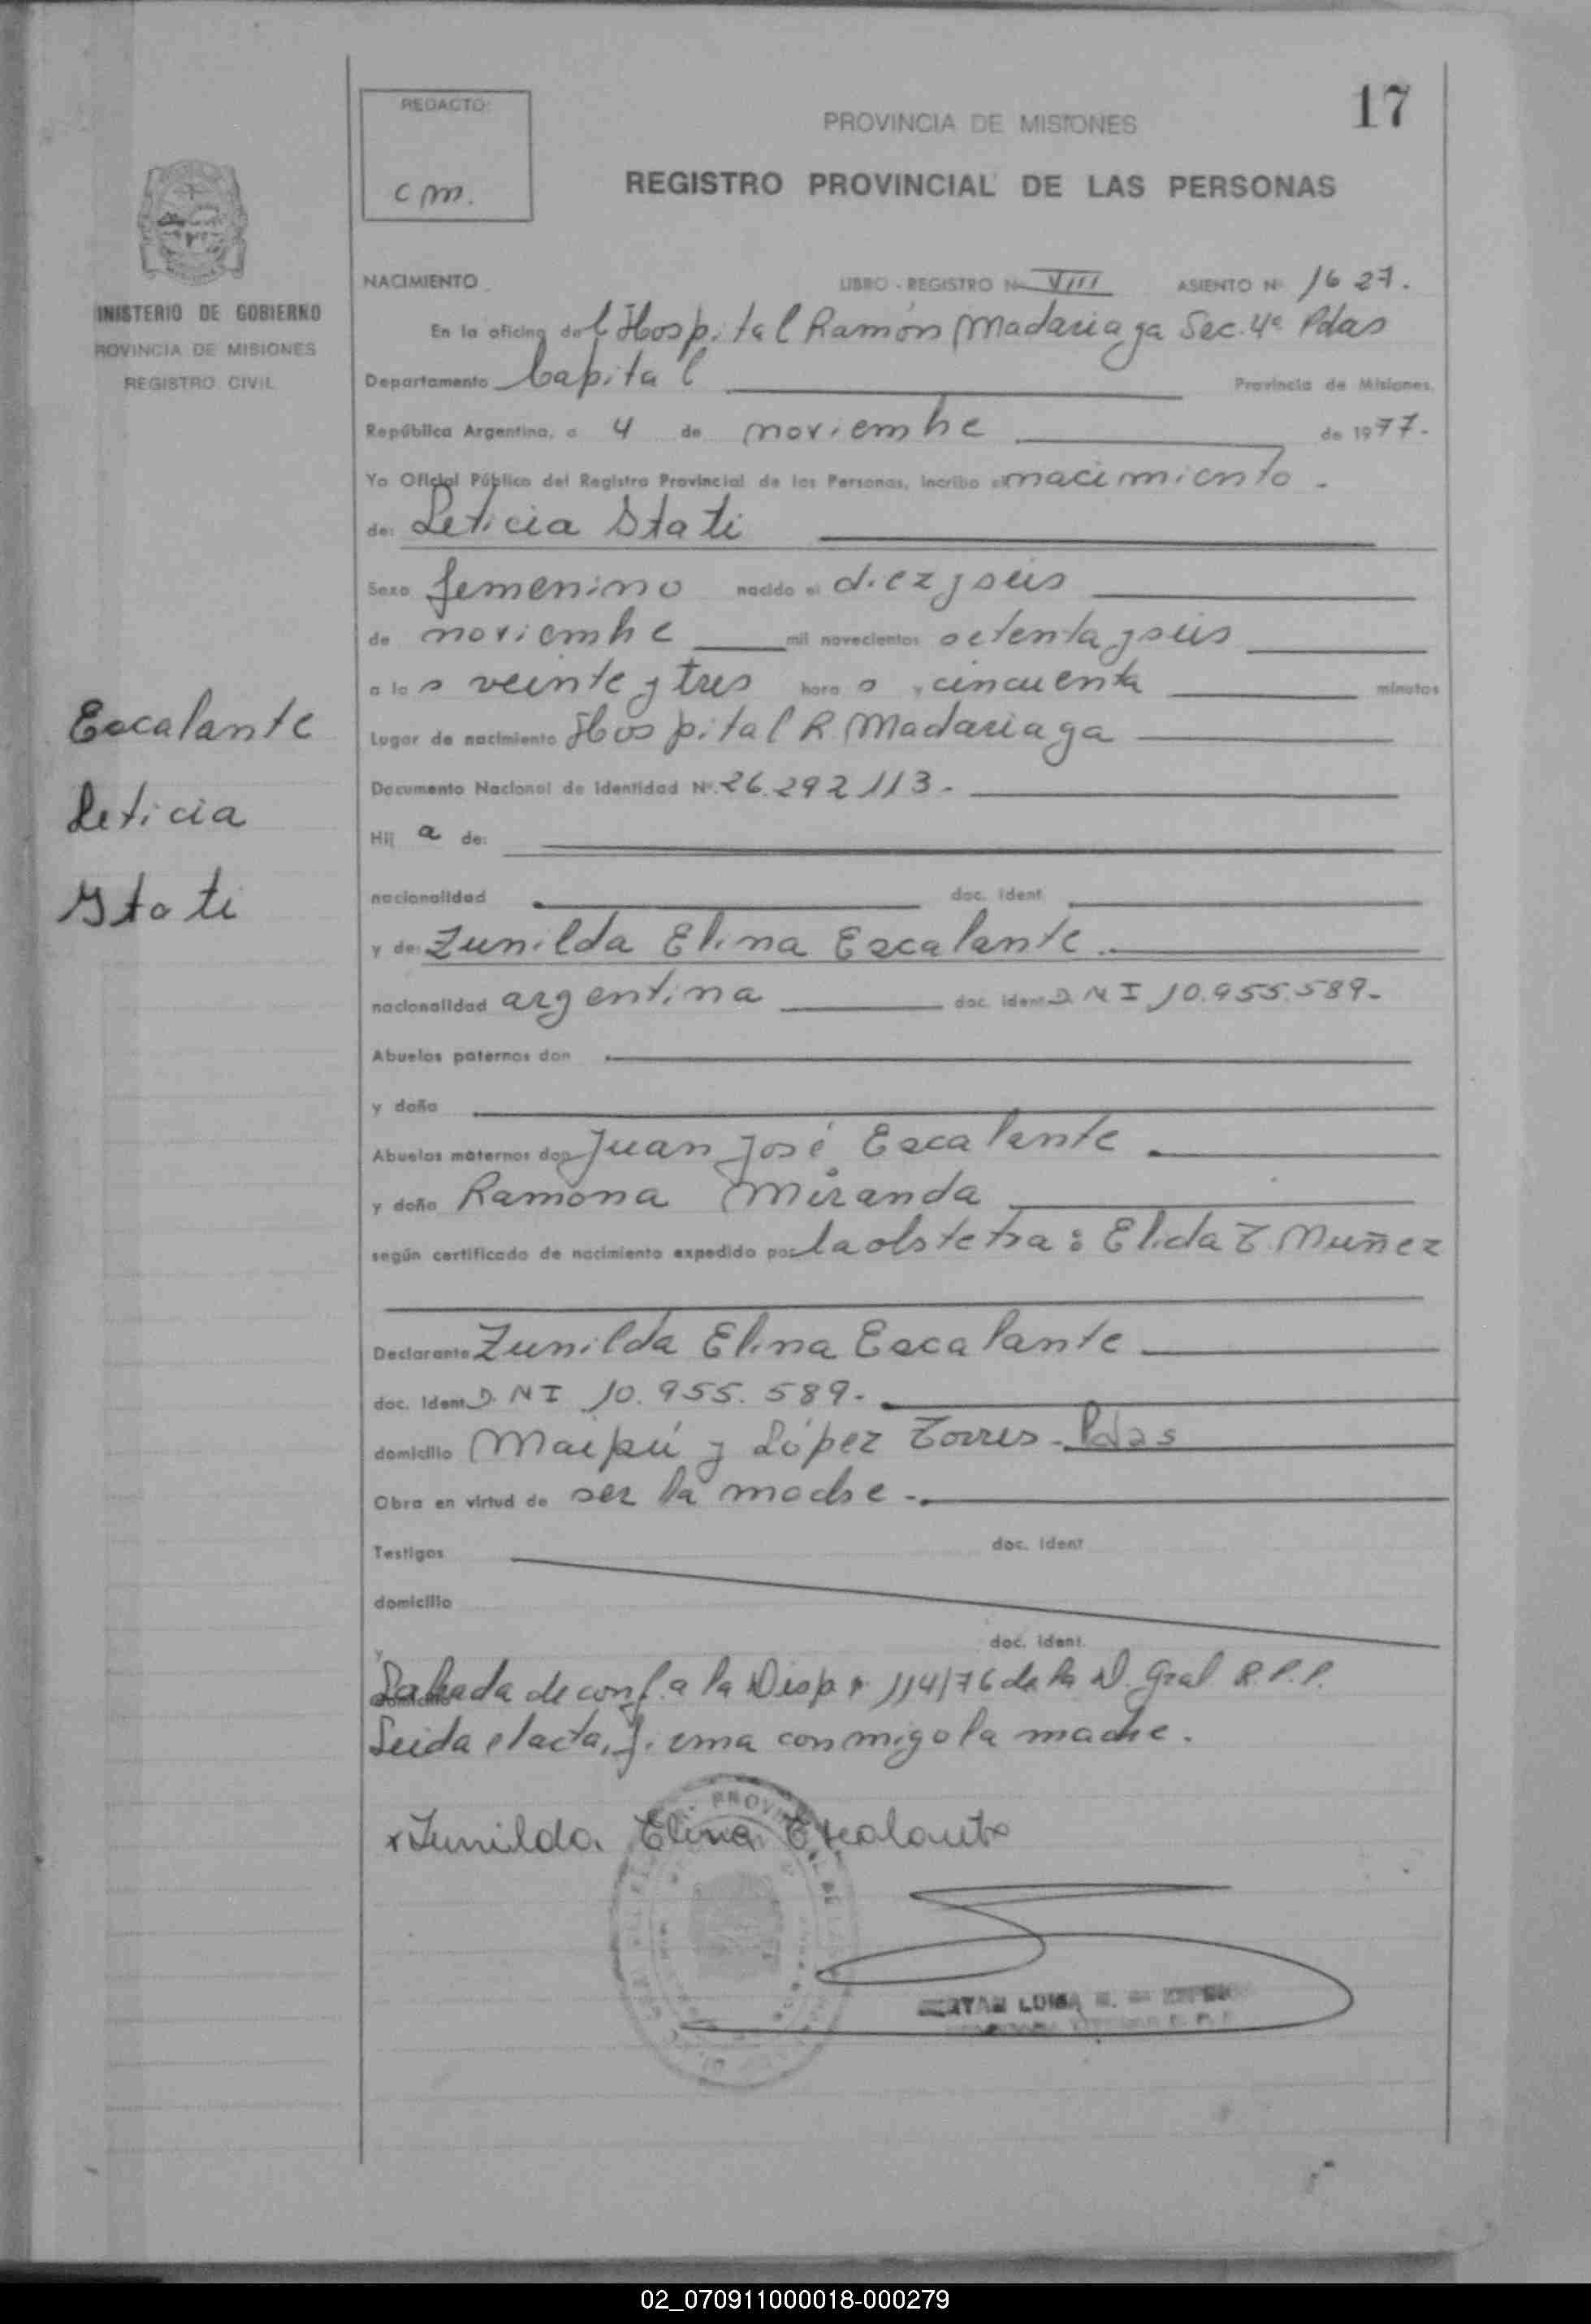 17
REDACTO:
c m.
PROVINCIA DE MISIONES
REGISTRO PROVINCIAL DE LAS PERSONAS
INISTERIO DE GOBIERNO
ROVINCIA DE MISIONES
REGISTRO CIVIL
NACIMIENTO LIBRO - REGISTRO Nº VIII ASIENTO Nº 1627.
En la oficina del Hospital Ramón Madariaga Sec. 4ª Pdas
Departamento Capital Provincia de Misiones,
República Argentina, a 4 de noviembre de 1977.-
Yo Oficial Público del Registro Provincial de las Personas, incribo el nacimiento.
de: Leticia Stati
Sexo femenino nacido el diez y seis
de noviembre mil novecientos setenta y seis
a las veinte y tres horas y cincuenta minutos
Lugar de nacimiento Hospital R. Madariaga
Documento Nacional de Identidad Nº. 26.292113.-
Hij a de:
nacionalidad doc. ident.
y de: Zunilda Elina Escalante.
nacionalidad argentina doc. ident D N I 10.955.589-
Abuelos paternos don
y doña
Abuelos maternos don Juan José Escalante.
y doña Ramona Miranda
según certificado de nacimiento expedido por la obstetra: Elida T. Muñez
Declarante Zunilda Elina Escalante
doc. Ident D. N I 10.955.589-.
domicilio Maipú y López Torres-Pdas
Obra en virtud de ser la madre-.
Testigos doc. Ident
domicilio
y doc. ident.
Labrada de conf. a la Disp. 114/76 de la D. Gral R.P.P.
Leida el acta, firma conmigo la madre.
x Zunilda Elina Escalante
LUISA
Escalante
Leticia
Stati
02_070911000018-000279